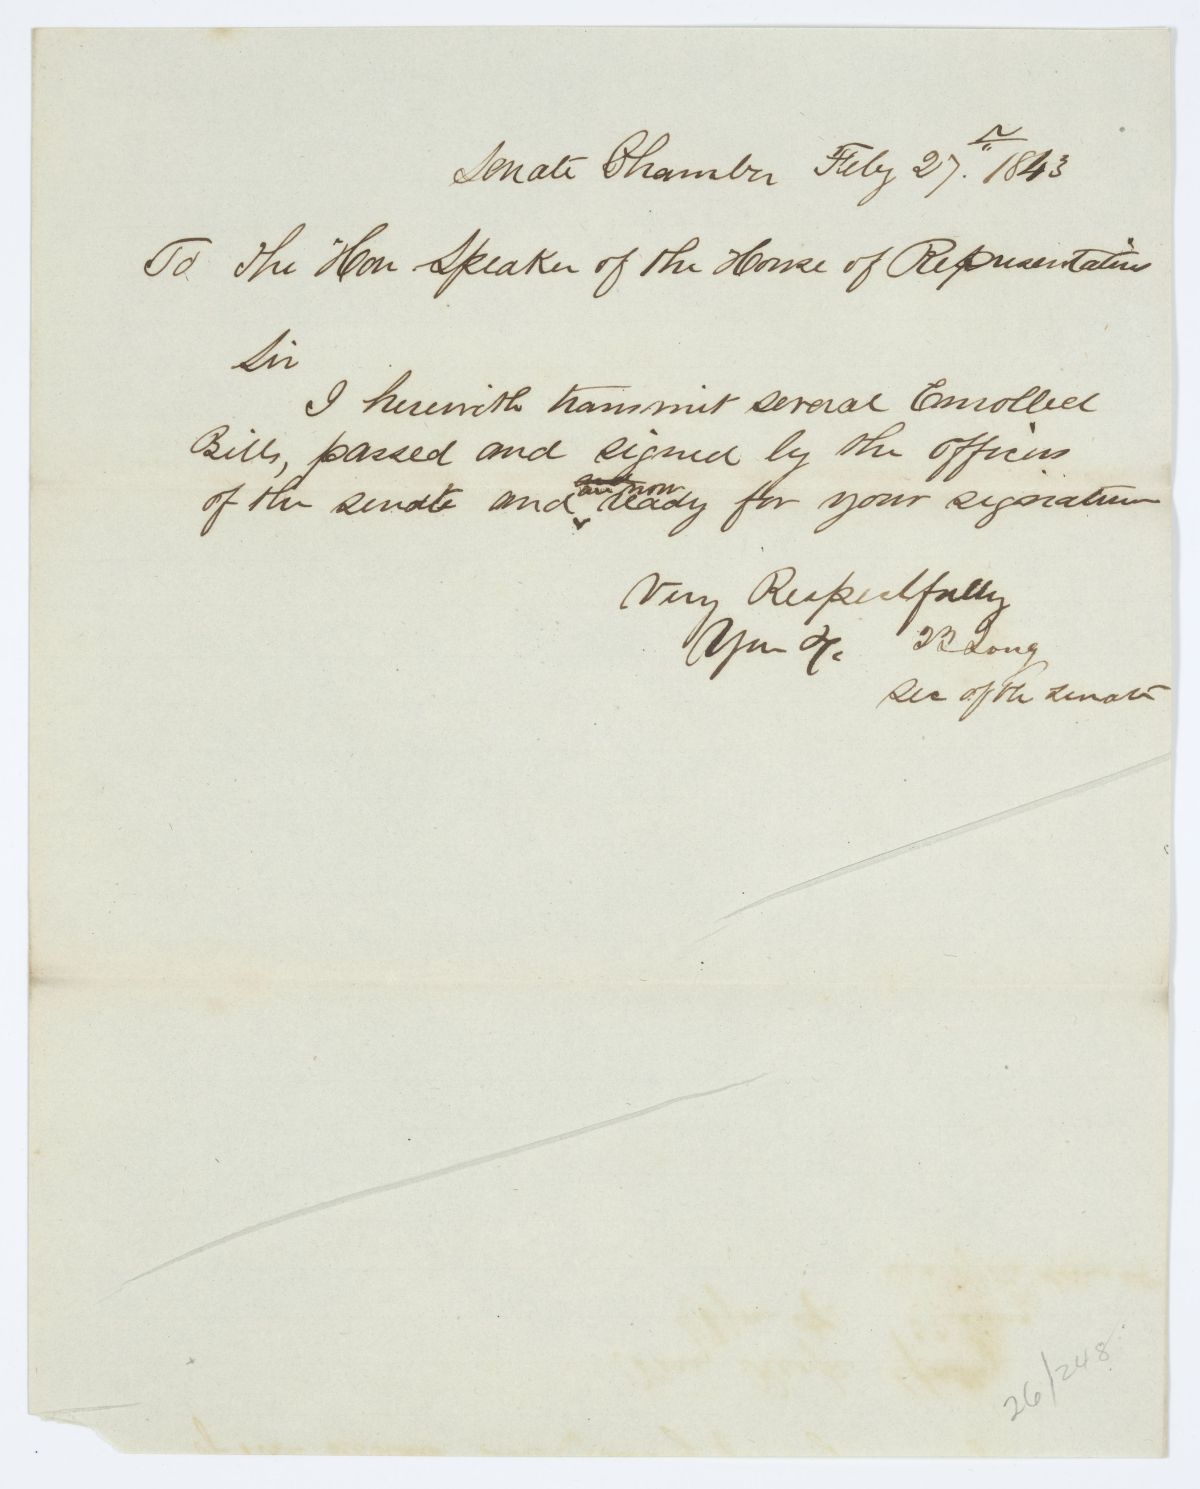 Senate Chamber Feby 27. 1843
To The Hon Speaker of the House of Representatives
Sir
I herewith transmit several Enrolled
Bills, passed and signed by the officers
of the senate and are now ready for your signature
Very Respectfully
Your &c Long
sec of the senate
26/248